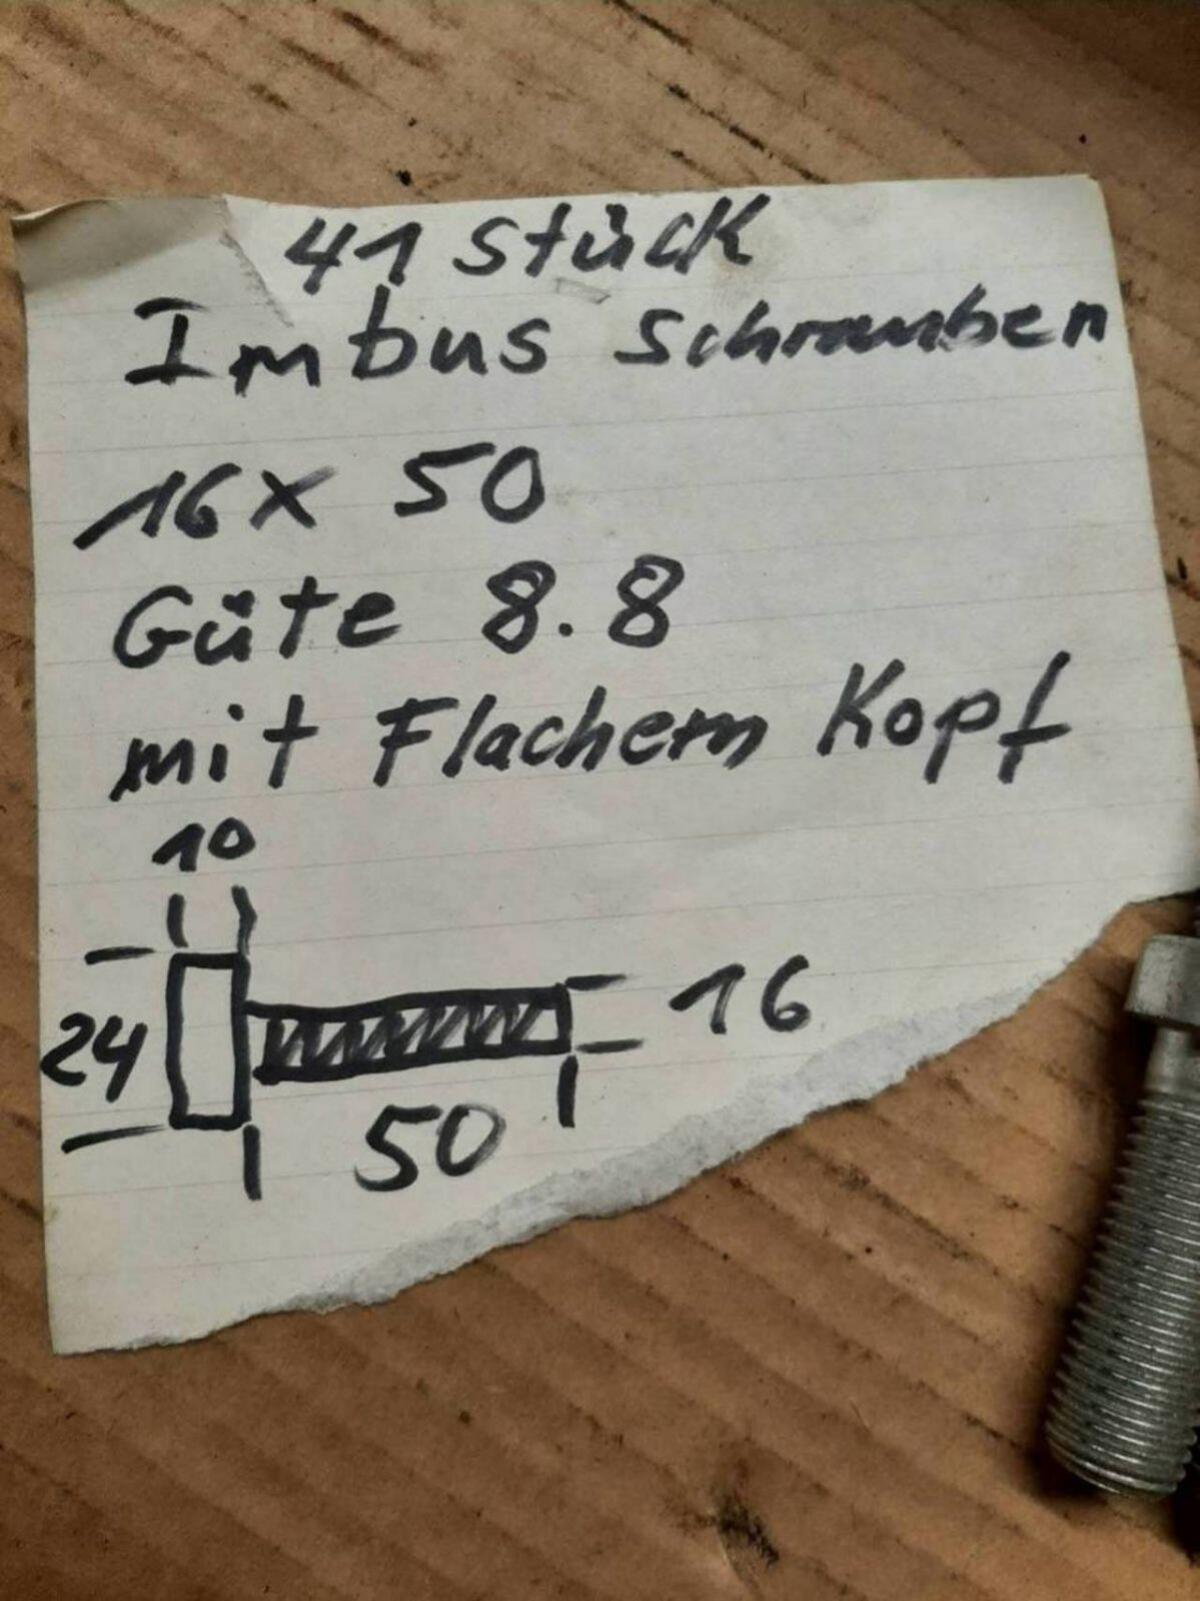 41 Stück
Imbus Schrauben
16x 50
Güte 8.8
mit Flachem Kopf
10
24
16
50